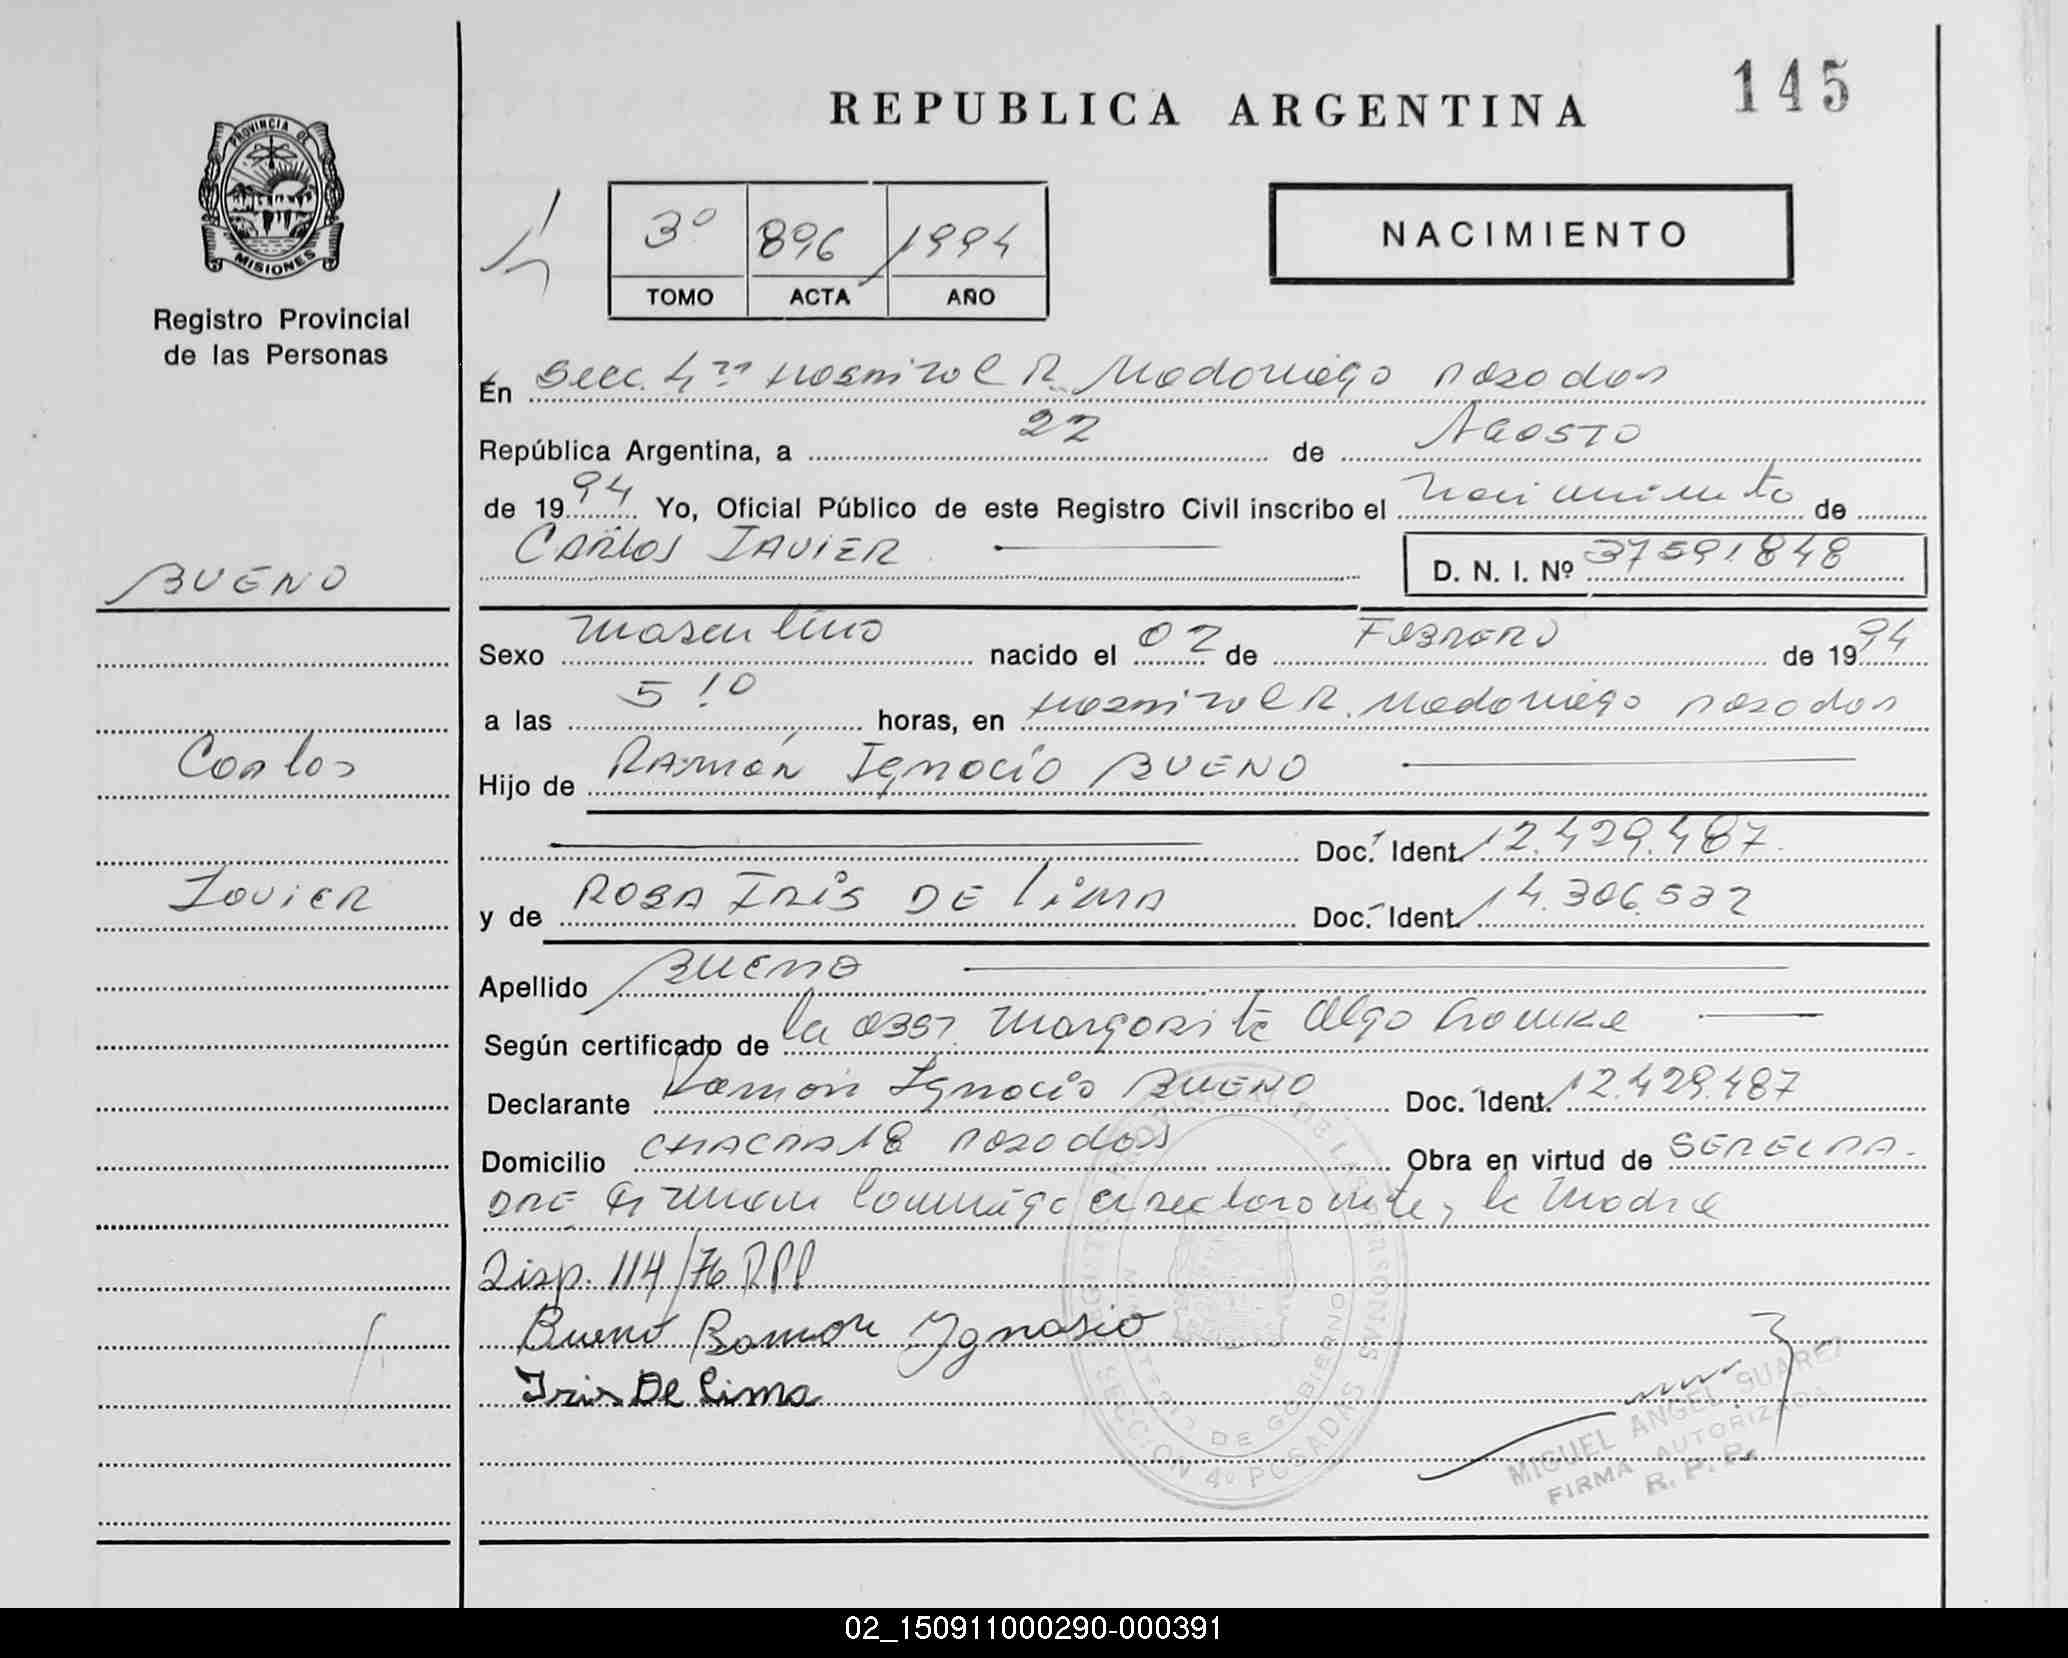 145
REPUBLICA ARGENTINA
PROVINCIA DE
MISIONES
Registro Provincial
de las Personas
3º 896 1994
TOMO ACTA AÑO
NACIMIENTO
En Secc. 4ta Hospital R. Madariaga Posadas
República Argentina, a 22 de Agosto
de 1994 Yo, Oficial Público de este Registro Civil inscribo el nacimiento de
BUENO
Carlos Javier D. N. I. Nº 37591848
Sexo masculino nacido el 02 de Febrero de 1994
a las 5:10 horas, en Hospital R. Madariaga Posadas
Carlos
Hijo de Ramón Ignacio BUENO
Doc. Ident. 12.429.487
Javier
y de Rosa Iris DE Lima Doc. Ident. 14.306.532
Apellido Bueno
Según certificado de la obst. Margarita Olga
Declarante Ramon Ignacio BUENO Doc. Ident. 12.429.487
Domicilio CHACRA 18 Posadas Obra en virtud de SER EL PA-
DRE Firman conmigo el declarante y la Madre
Disp. 114/76 RPP
Bueno Ramon Ygnasio
Iris De Lima
MINISTERIO DE GOBIERNO
SECCION 4º POSADAS
MIGUEL ANGEL SUAREZ
FIRMA AUTORIZADA
R. P. P.
02_150911000290-000391